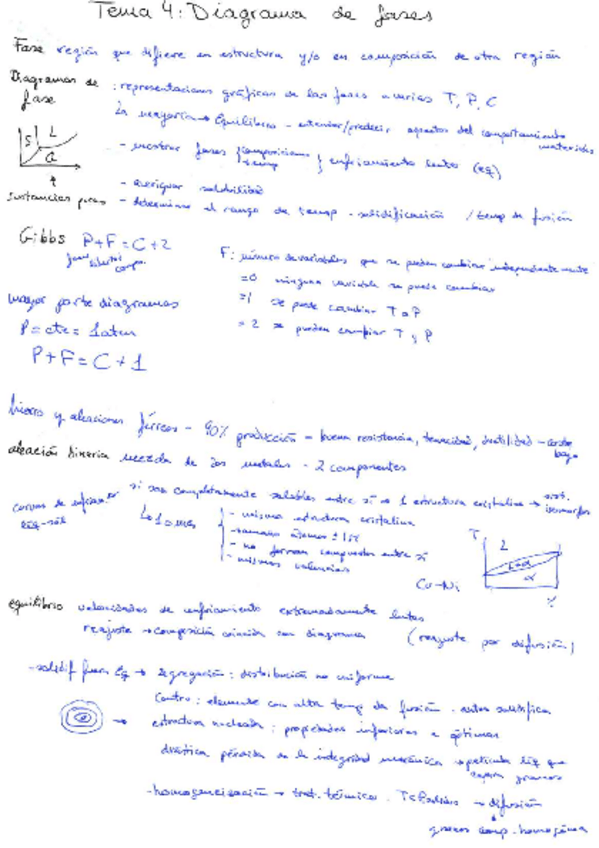 Tema 4: Diagrama de fases
Fase región que difiere en estructura y/o en composición de otra región
Diagramas de fase : representaciones gráficas de las fases a varias T, P, C
La mayoría → Equilibrio - entender/predecir aspectos del comportamiento materiales
- mostrar fases { composiciones temp } enfriamiento lentos (eq)
S L G
- averiguar solubilidad
sustancias puras - determinar el rango de temp. solidificación / temp de fusión
Gibbs P+F=C+2
fases comp.
F: número de variables que se pueden cambiar independientemente
=0 ninguna variable se puede cambiar
=1 se puede cambiar T o P
=2 se pueden cambiar T y P
mayor parte diagramas
P=cte=1atm
P+F=C+1
hierro y aleaciones férreas - 90% producción - buena resistencia, tenacidad, ductilidad - coste bajo
aleación binaria mezcla de dos metales - 2 componentes
si son completamente solubles entre sí → 1 estructura cristalina → sist. isomorfos
curvas de enfriam. líq-sól
- misma estructura cristalina
- tamaño átomos ± 15%
- no forman compuestos entre sí
- mismas valencias
Cu-Ni
T L L+α α %
equilibrio velocidades de enfriamiento extremadamente lentas
reajuste → composición coincida con diagramas (reajuste por difusión)
- solidif fuera Eq → segregación: distribución no uniforme
Centro: elemento con alta temp de fusión. antes solidifica
→ estructura nucleada: propiedades inferiores a óptimas
drástica pérdida de la integridad mecánica → película líq que granos
- homogeneización → trat. térmico. T< → difusión
granos comp. homogénea